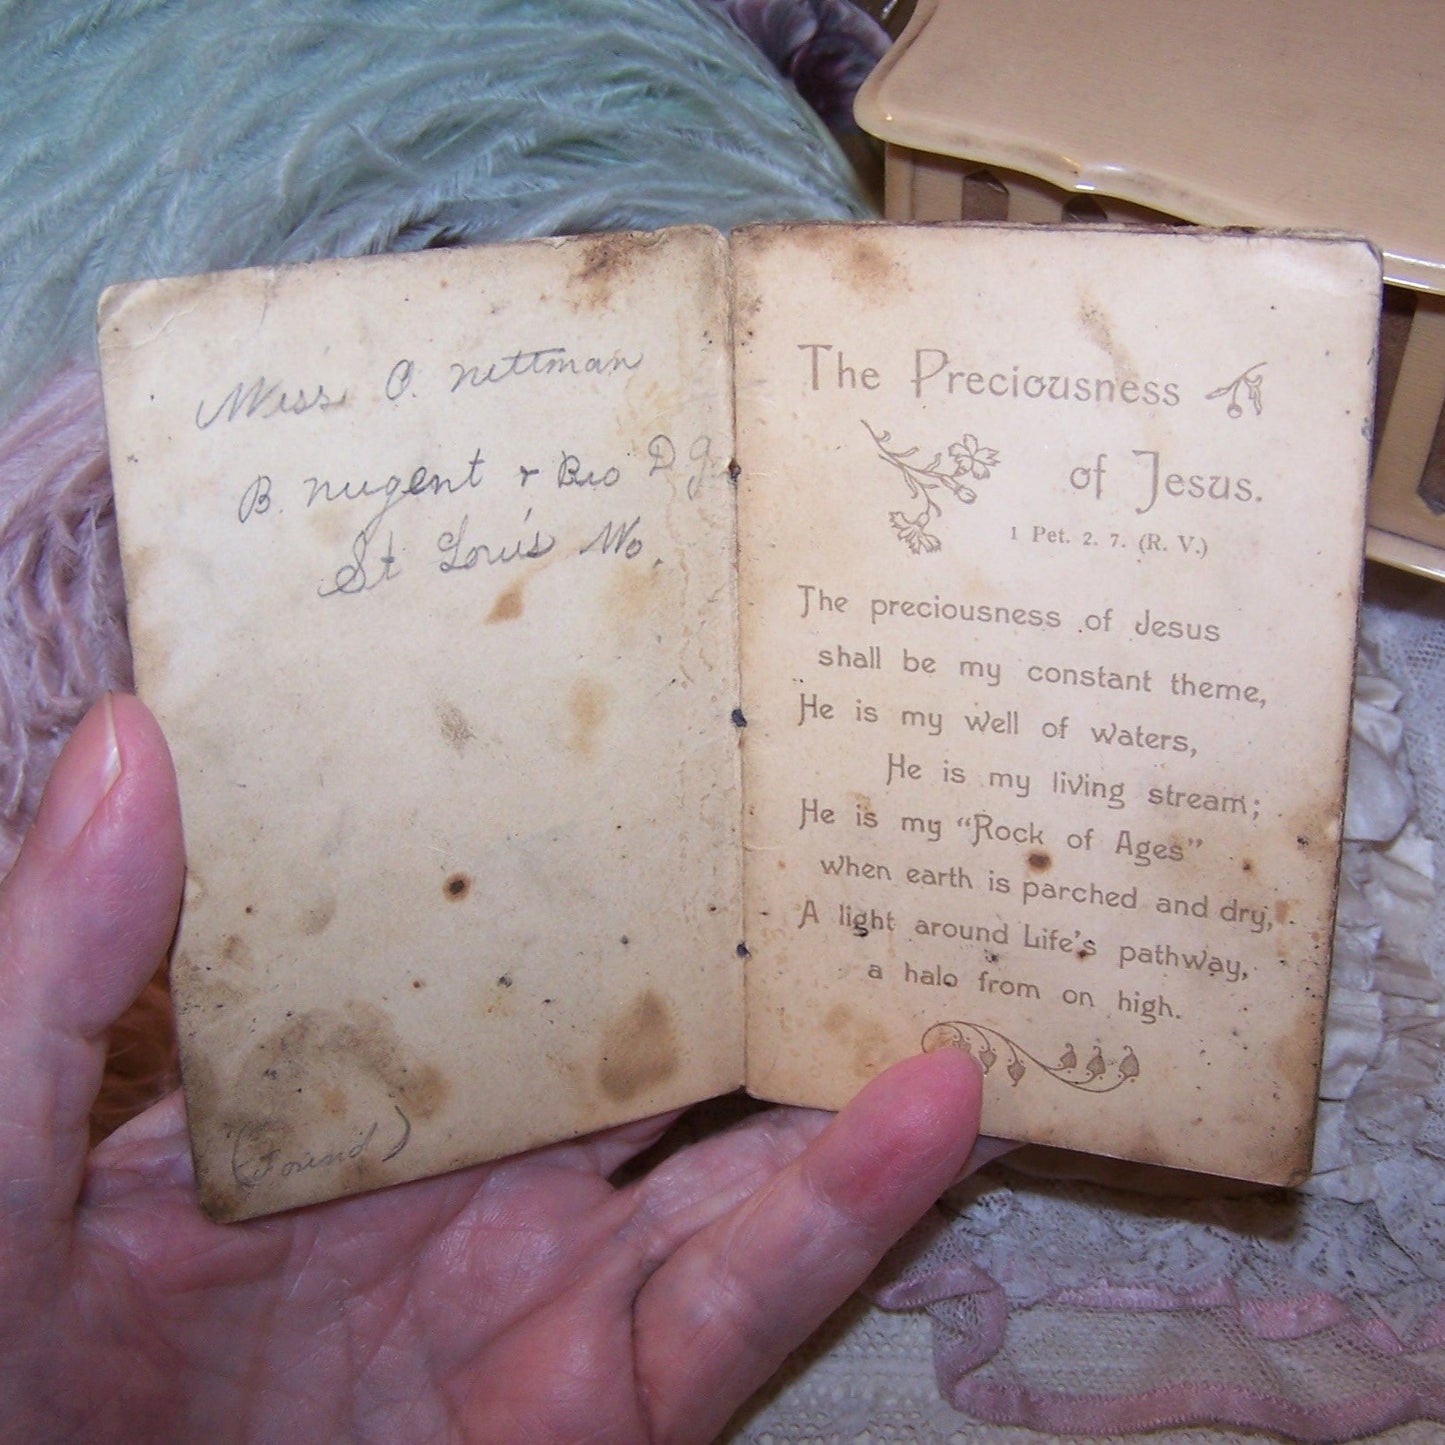 Miss. O. Nettman
B. Nugent + Bro D. G.
St Louis Mo.
(Found)
The Preciousness
of Jesus.
1 Pet. 2. 7. (R. V.)
The preciousness of Jesus
shall be my constant theme,
He is my well of waters,
He is my living stream;
He is my “Rock of Ages”
when earth is parched and dry,
A light around Life's pathway,
a halo from on high.